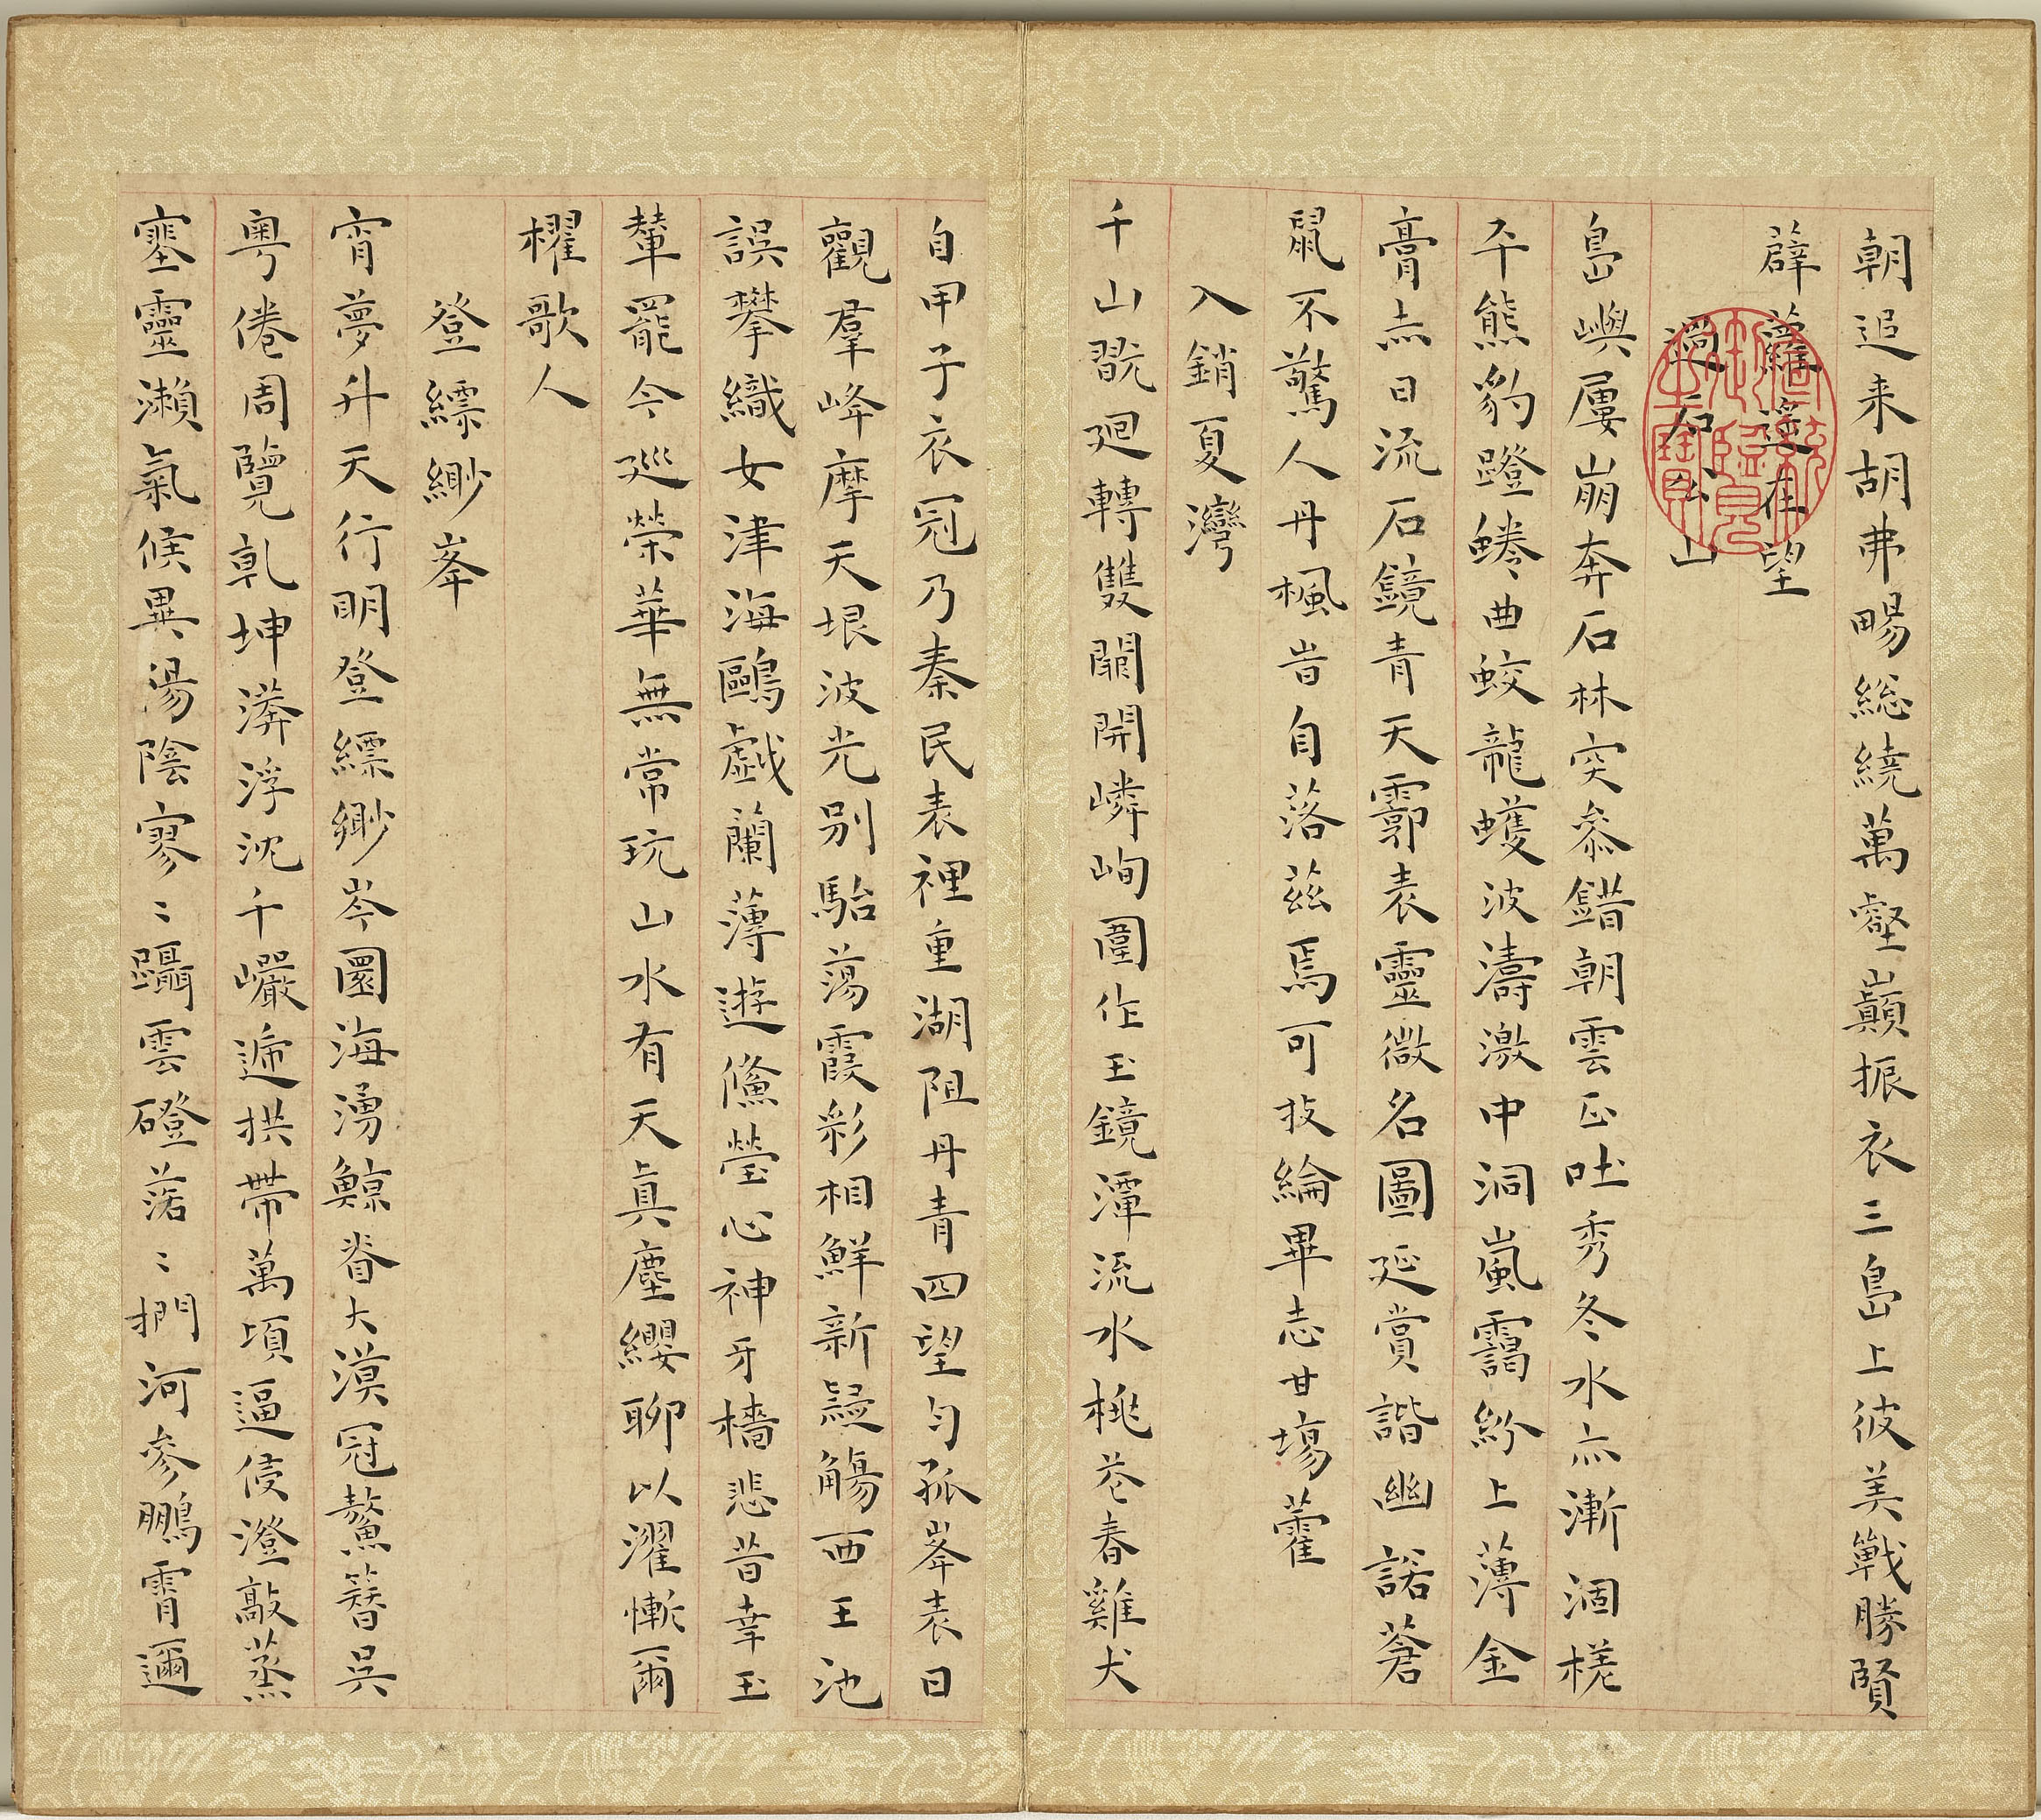 朝追来胡弗暘総繞萬壑巔振衣三島上彼美戰勝賢
薜蘿遥在望
過石公山
島嶼屢崩奔石林突叅錯朝雲正吐秀冬水亦漸涸槎
平熊豹蹬蜷曲蛟龍蠖波濤激中洞嵐靄紛上薄金
膏亦日流石鏡青天霩表靈微名圖延賞諧幽諾蒼
鼠不驚人丹楓旹自落茲焉可投綸畢志甘場藿
入銷夏灣
千山翫廻轉雙闕開嶙峋圍作玉鏡潭流水桃花春雞犬
自甲子衣冠乃秦民表裡重湖阻丹青四望勻孤峯表日
觀羣峰摩天垠波光别駘蕩霞彩相鮮新疑觴西王池
誤攀織女津海鷗戯蘭薄遊鯈瑩心神牙檣悲昔幸玉
輦罷今巡榮華無常玩山水有天眞塵纓聊以濯慚爾
櫂歌人
登縹緲峯
宵夢升天行明登縹緲岑圜海湧鯨脊大漠冠鰲簪吳
粤倦周覽乹坤漭浮沈千巖遞拱帶萬頃逼侵澄敲蒸
塞靈瀨氣候異湯陰寥〻躡雲磴萿〻捫河參鵬霄邇